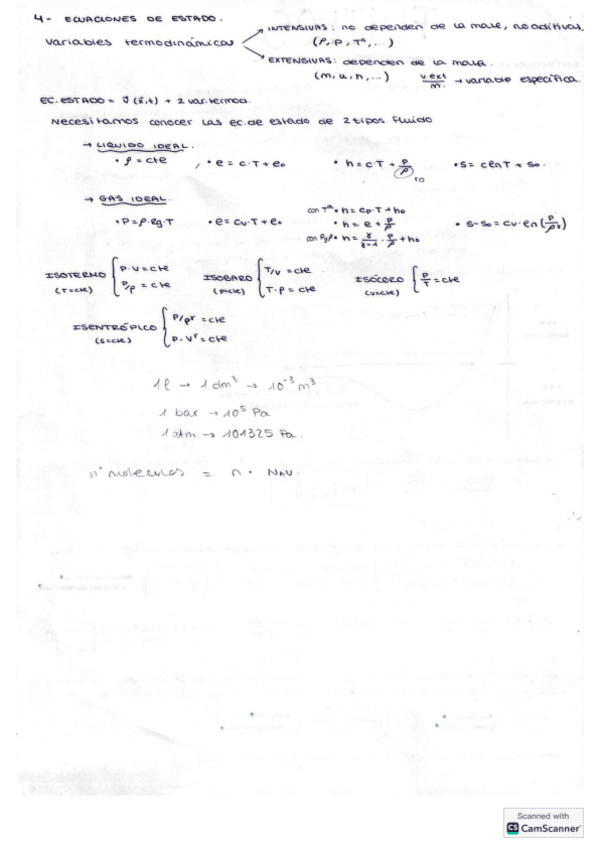 4- ECUACIONES DE ESTADO.
variables termodinámicas
INTENSIVAS: no dependen de la masa, no aditivas.
(ρ, p, Tª, ...)
EXTENSIVAS: dependen de la masa.
(m, u, h, ...) v.ext/m → variable específica
EC. ESTADO = v̄ (x̄,t) + 2 var. termod.
Necesitamos conocer las ec. de estado de 2 tipos fluido
→ LIQUIDO IDEAL.
• ρ = cte , • e = c·T + e₀ • h = cT + p/ρ • s = c ln T + s₀.
ro
→ GAS IDEAL.
• P = ρ·Rg·T • e = cv·T + e₀ con Tª • h = cp·T + h₀
• h = e + p/ρ • s-s₀ = cv·ln(p/ρ^γ)
con P y ρ • h = γ/γ-1 · p/ρ + h₀
ISOTERMO { P·V = cte ISOBARO { T/V = cte ISÓCORO { P/T = cte
(T=cte) P/ρ = cte (p=cte) T·ρ = cte (v=cte)
ISENTRÓPICO { P/ρ^γ = cte
(s=cte) P·V^γ = cte
1 l → 1 dm³ → 10⁻³ m³
1 bar → 10⁵ Pa
1 atm → 101325 Pa.
nº moleculas = n · NAV.
Scanned with
CS CamScanner